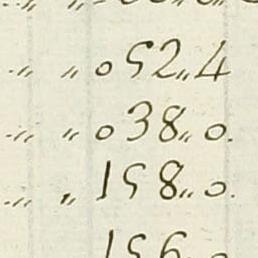 „ „ 052„4
„ „ 038„0.
„ „ 158„0.
156„0